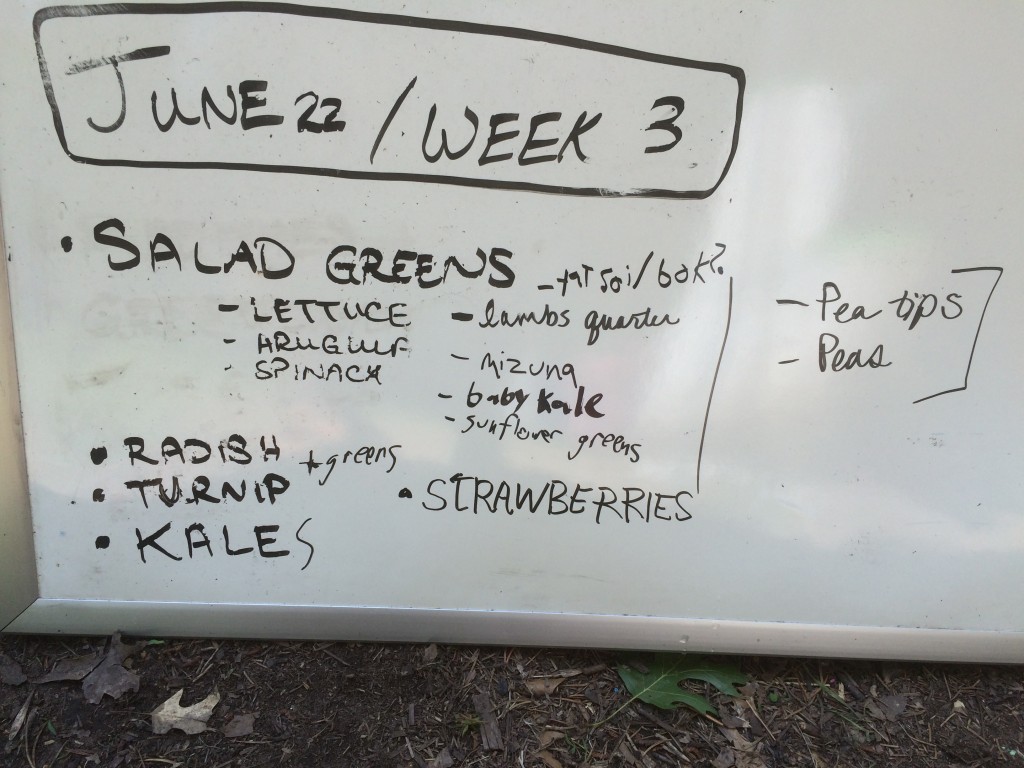 JUNE 22 / WEEK 3
• SALAD GREENS
- tat soi / bok?
- LETTUCE
- lambs quarter
- ARUGULA
- MIZUNA
- SPINACH
- baby kale
- sunflower greens
• RADISH + greens
• TURNIP
• STRAWBERRIES
• KALES
- Pea tips
- Peas